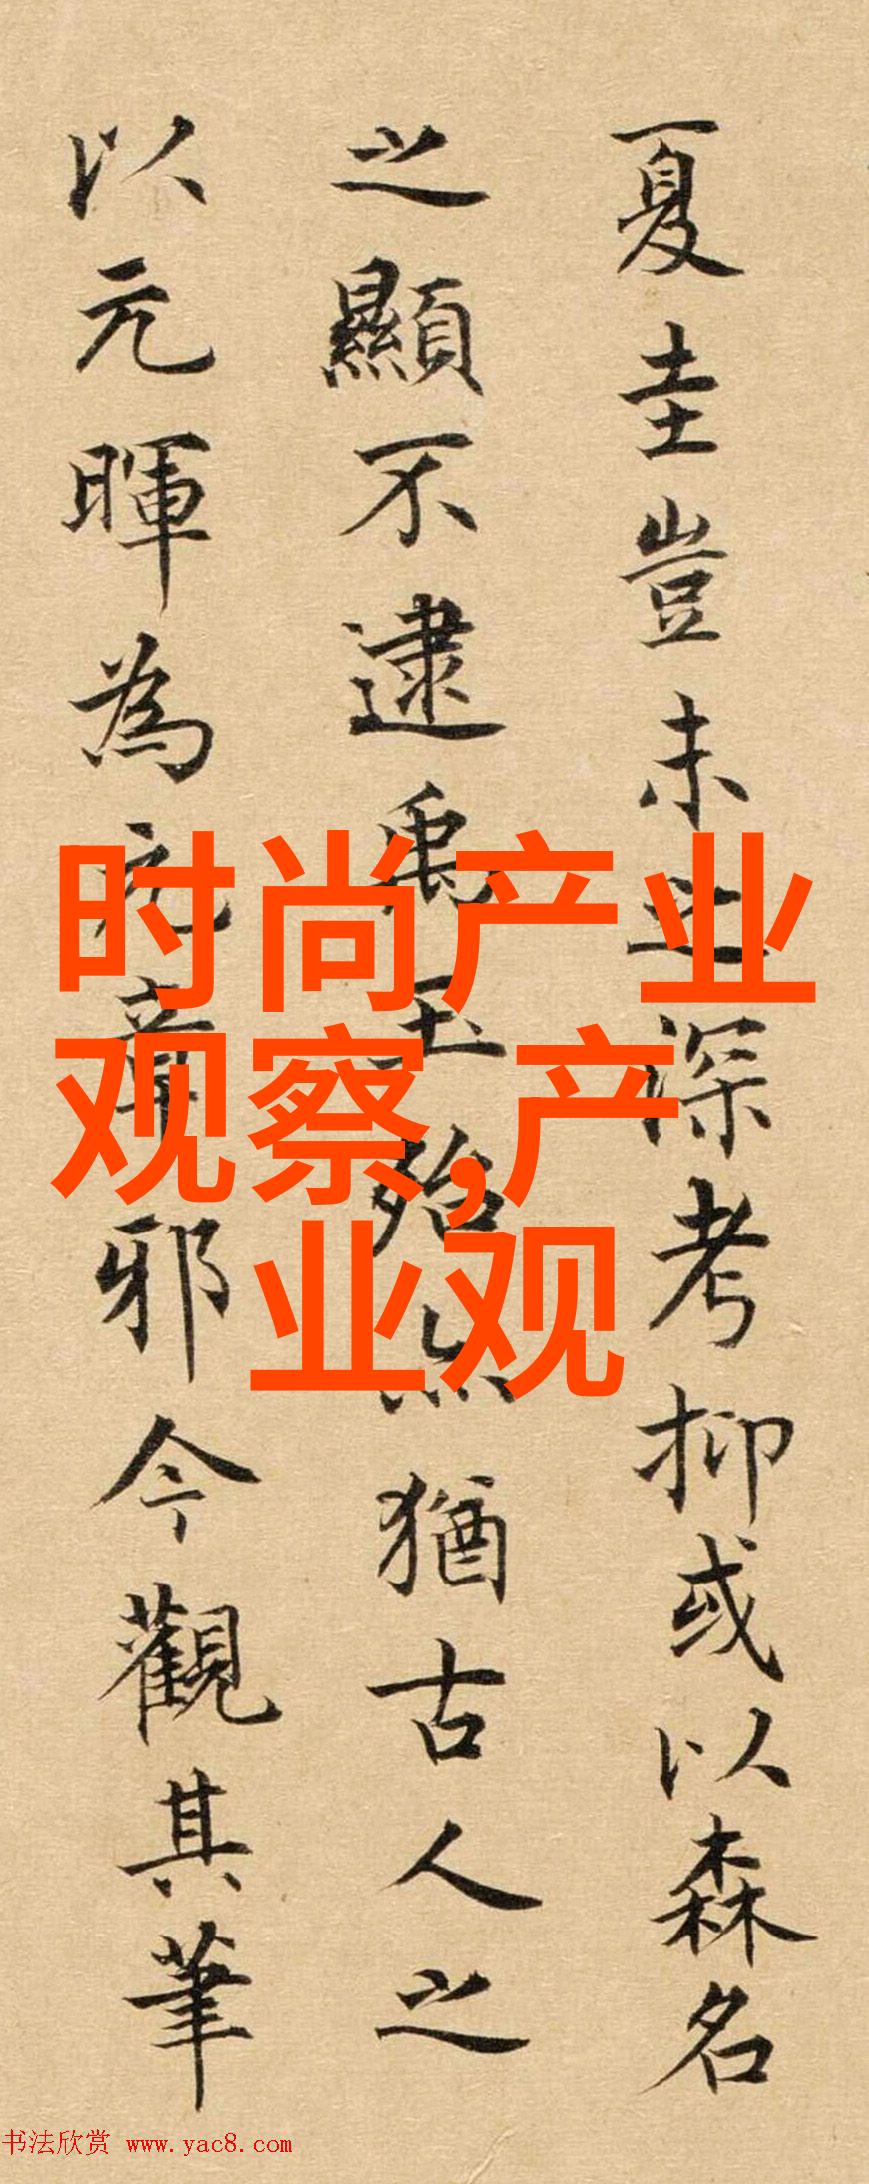 夏圭豈未之深考抑或以森名
之顯不逮禹玉殆亦猶古人之
以元暉為元章邪今觀其筆
时尚产业
观察,产
业观
书法欣赏 www.yac8.com